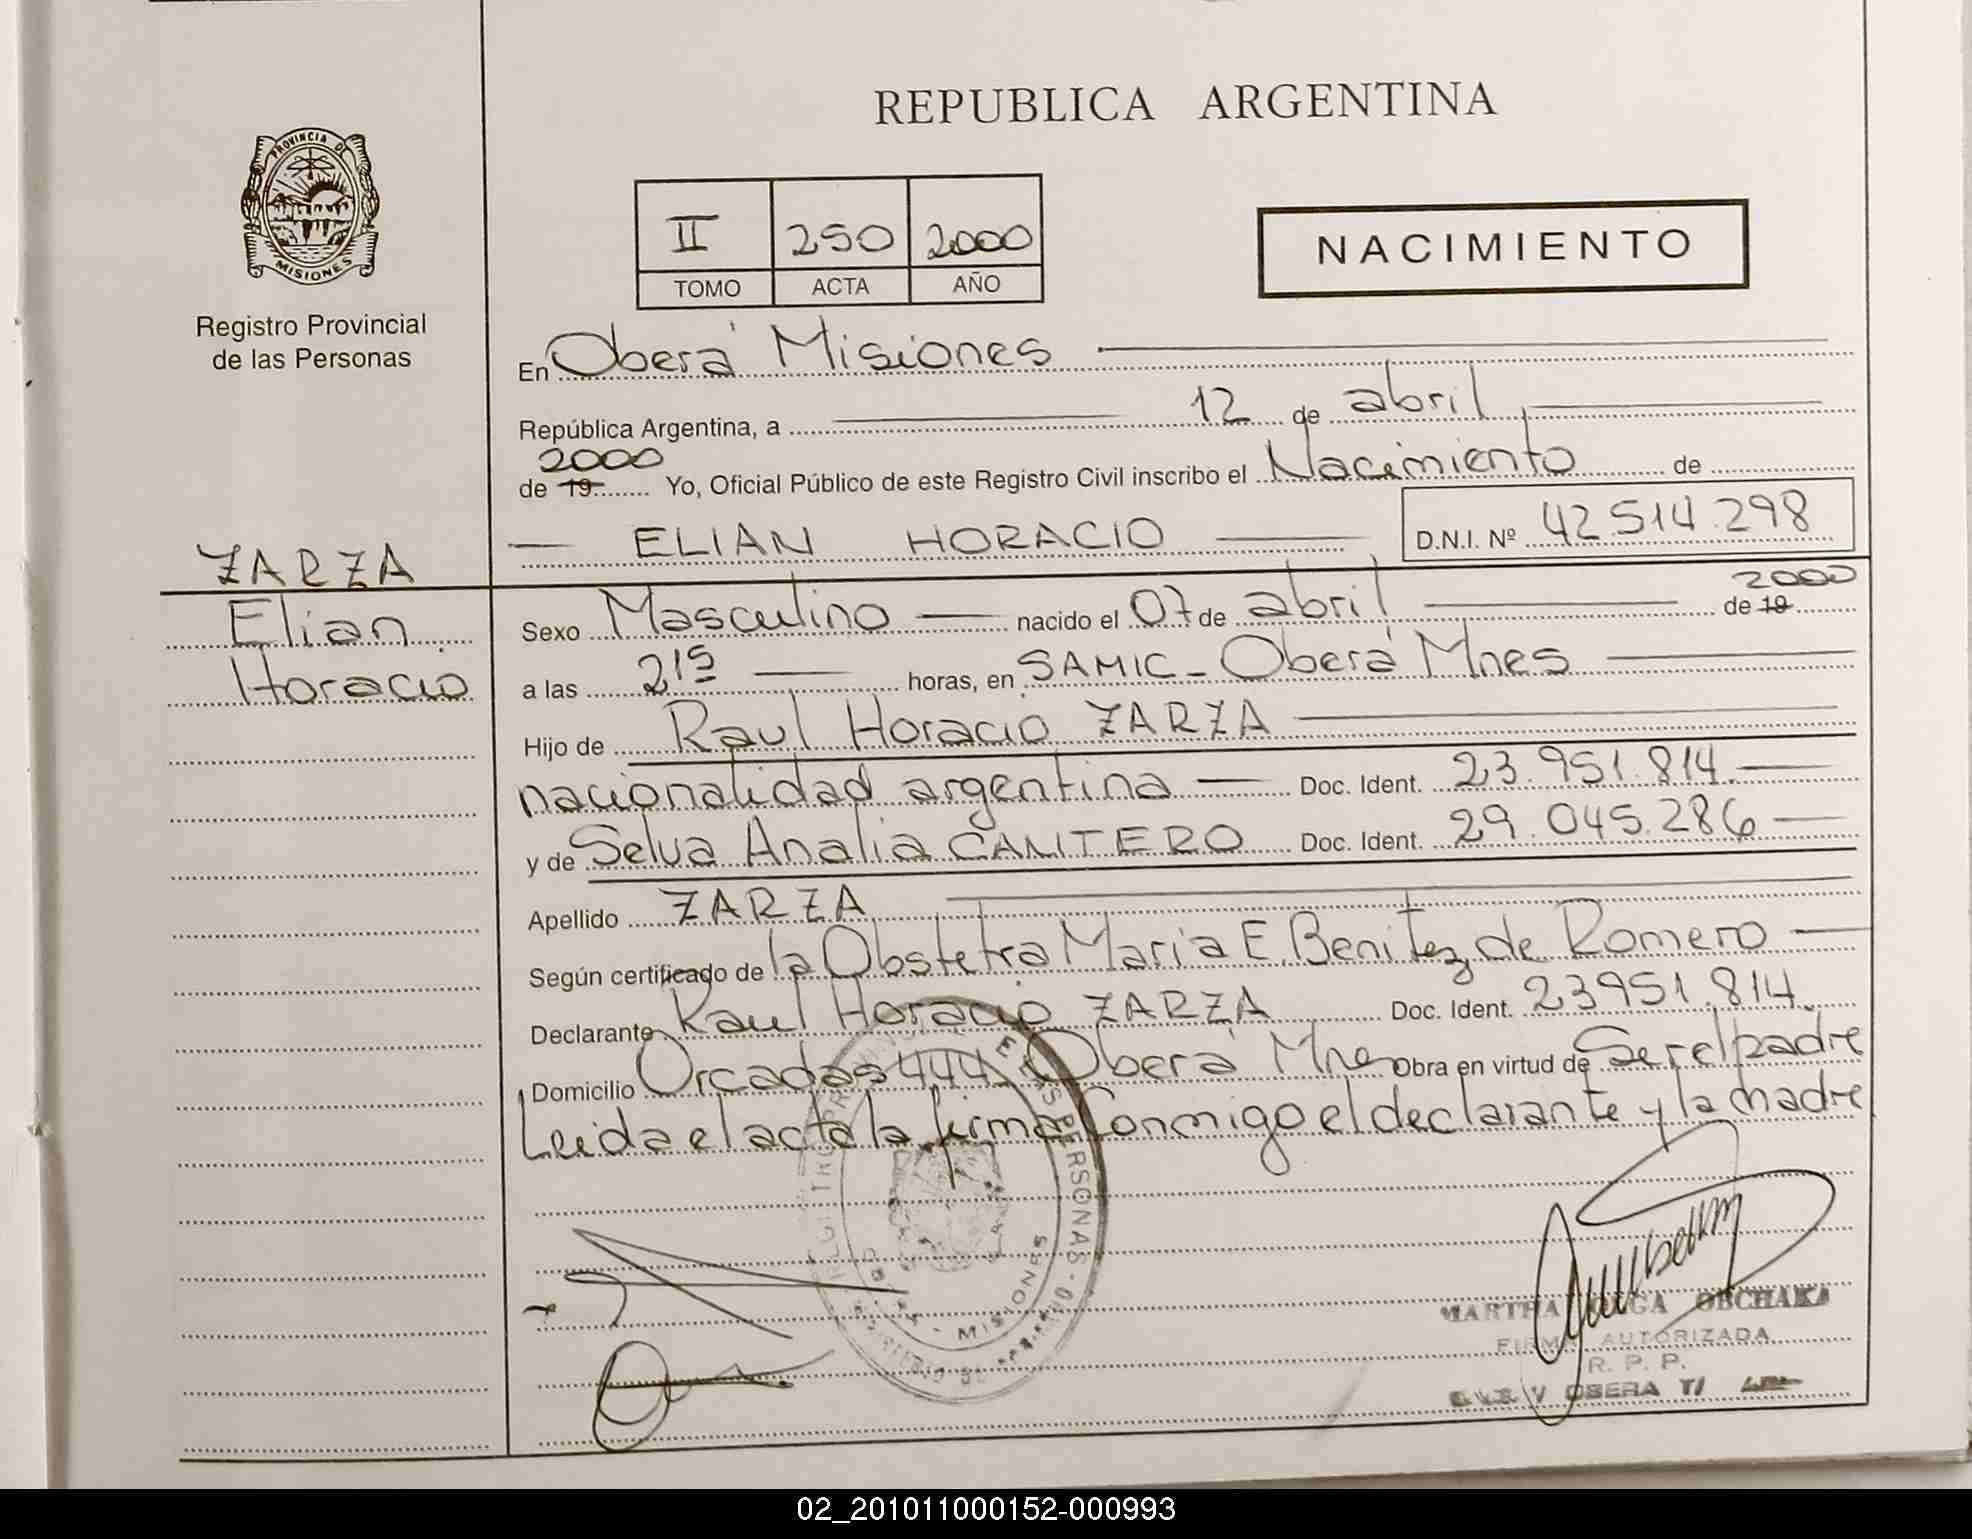 REPUBLICA ARGENTINA
PROVINCIA DE
MISIONES
Registro Provincial
de las Personas
II 250 2000
TOMO ACTA AÑO
NACIMIENTO
En Oberá Misiones
República Argentina, a 12 de abril
2000
de 19 Yo, Oficial Público de este Registro Civil inscribo el Nacimiento de
ELIAN HORACIO D.N.I. Nº 42.514.298
ZARZA
Elian
Horacio
2000
Sexo Masculino nacido el 07 de abril de 19
a las 21 15 horas, en SAMIC - Oberá Mnes
Hijo de Raul Horacio ZARZA
nacionalidad argentina Doc. Ident. 23.951.814
y de Selva Analia CANTERO Doc. Ident. 29.045.286
Apellido ZARZA
Según certificado de la Obstetra Maria E. Benitez de Romero
Declarante Raul Horacio ZARZA Doc. Ident. 23951.814
Domicilio Orcadas 444 Oberá Mnes Obra en virtud de Ser el padre
Leida el acta la firma Conmigo el declarante y la madre
PERSONAS
MISIONES
MARTHA OLGA OBCHAKA
FIRMA AUTORIZADA
R. P. P.
OBERA
02_201011000152-000993